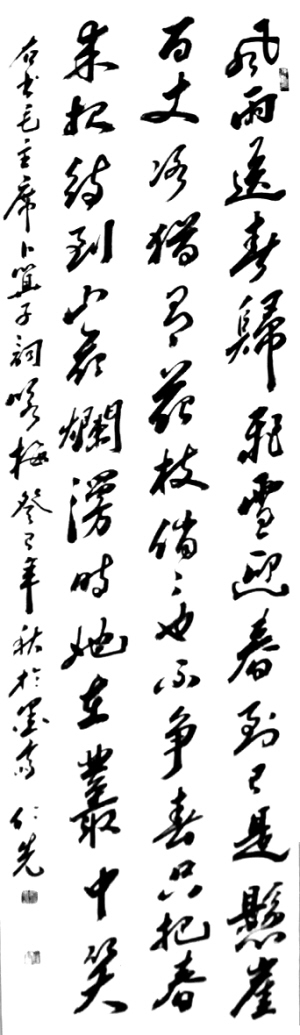 风雨送春歸飛雪迎春到已是懸崖
百丈冰猶有花枝俏俏也不争春只把春
来报待到山花爛漫時她在叢中笑
右书毛主席卜算子詞咏梅癸巳年秋於墨家仁先